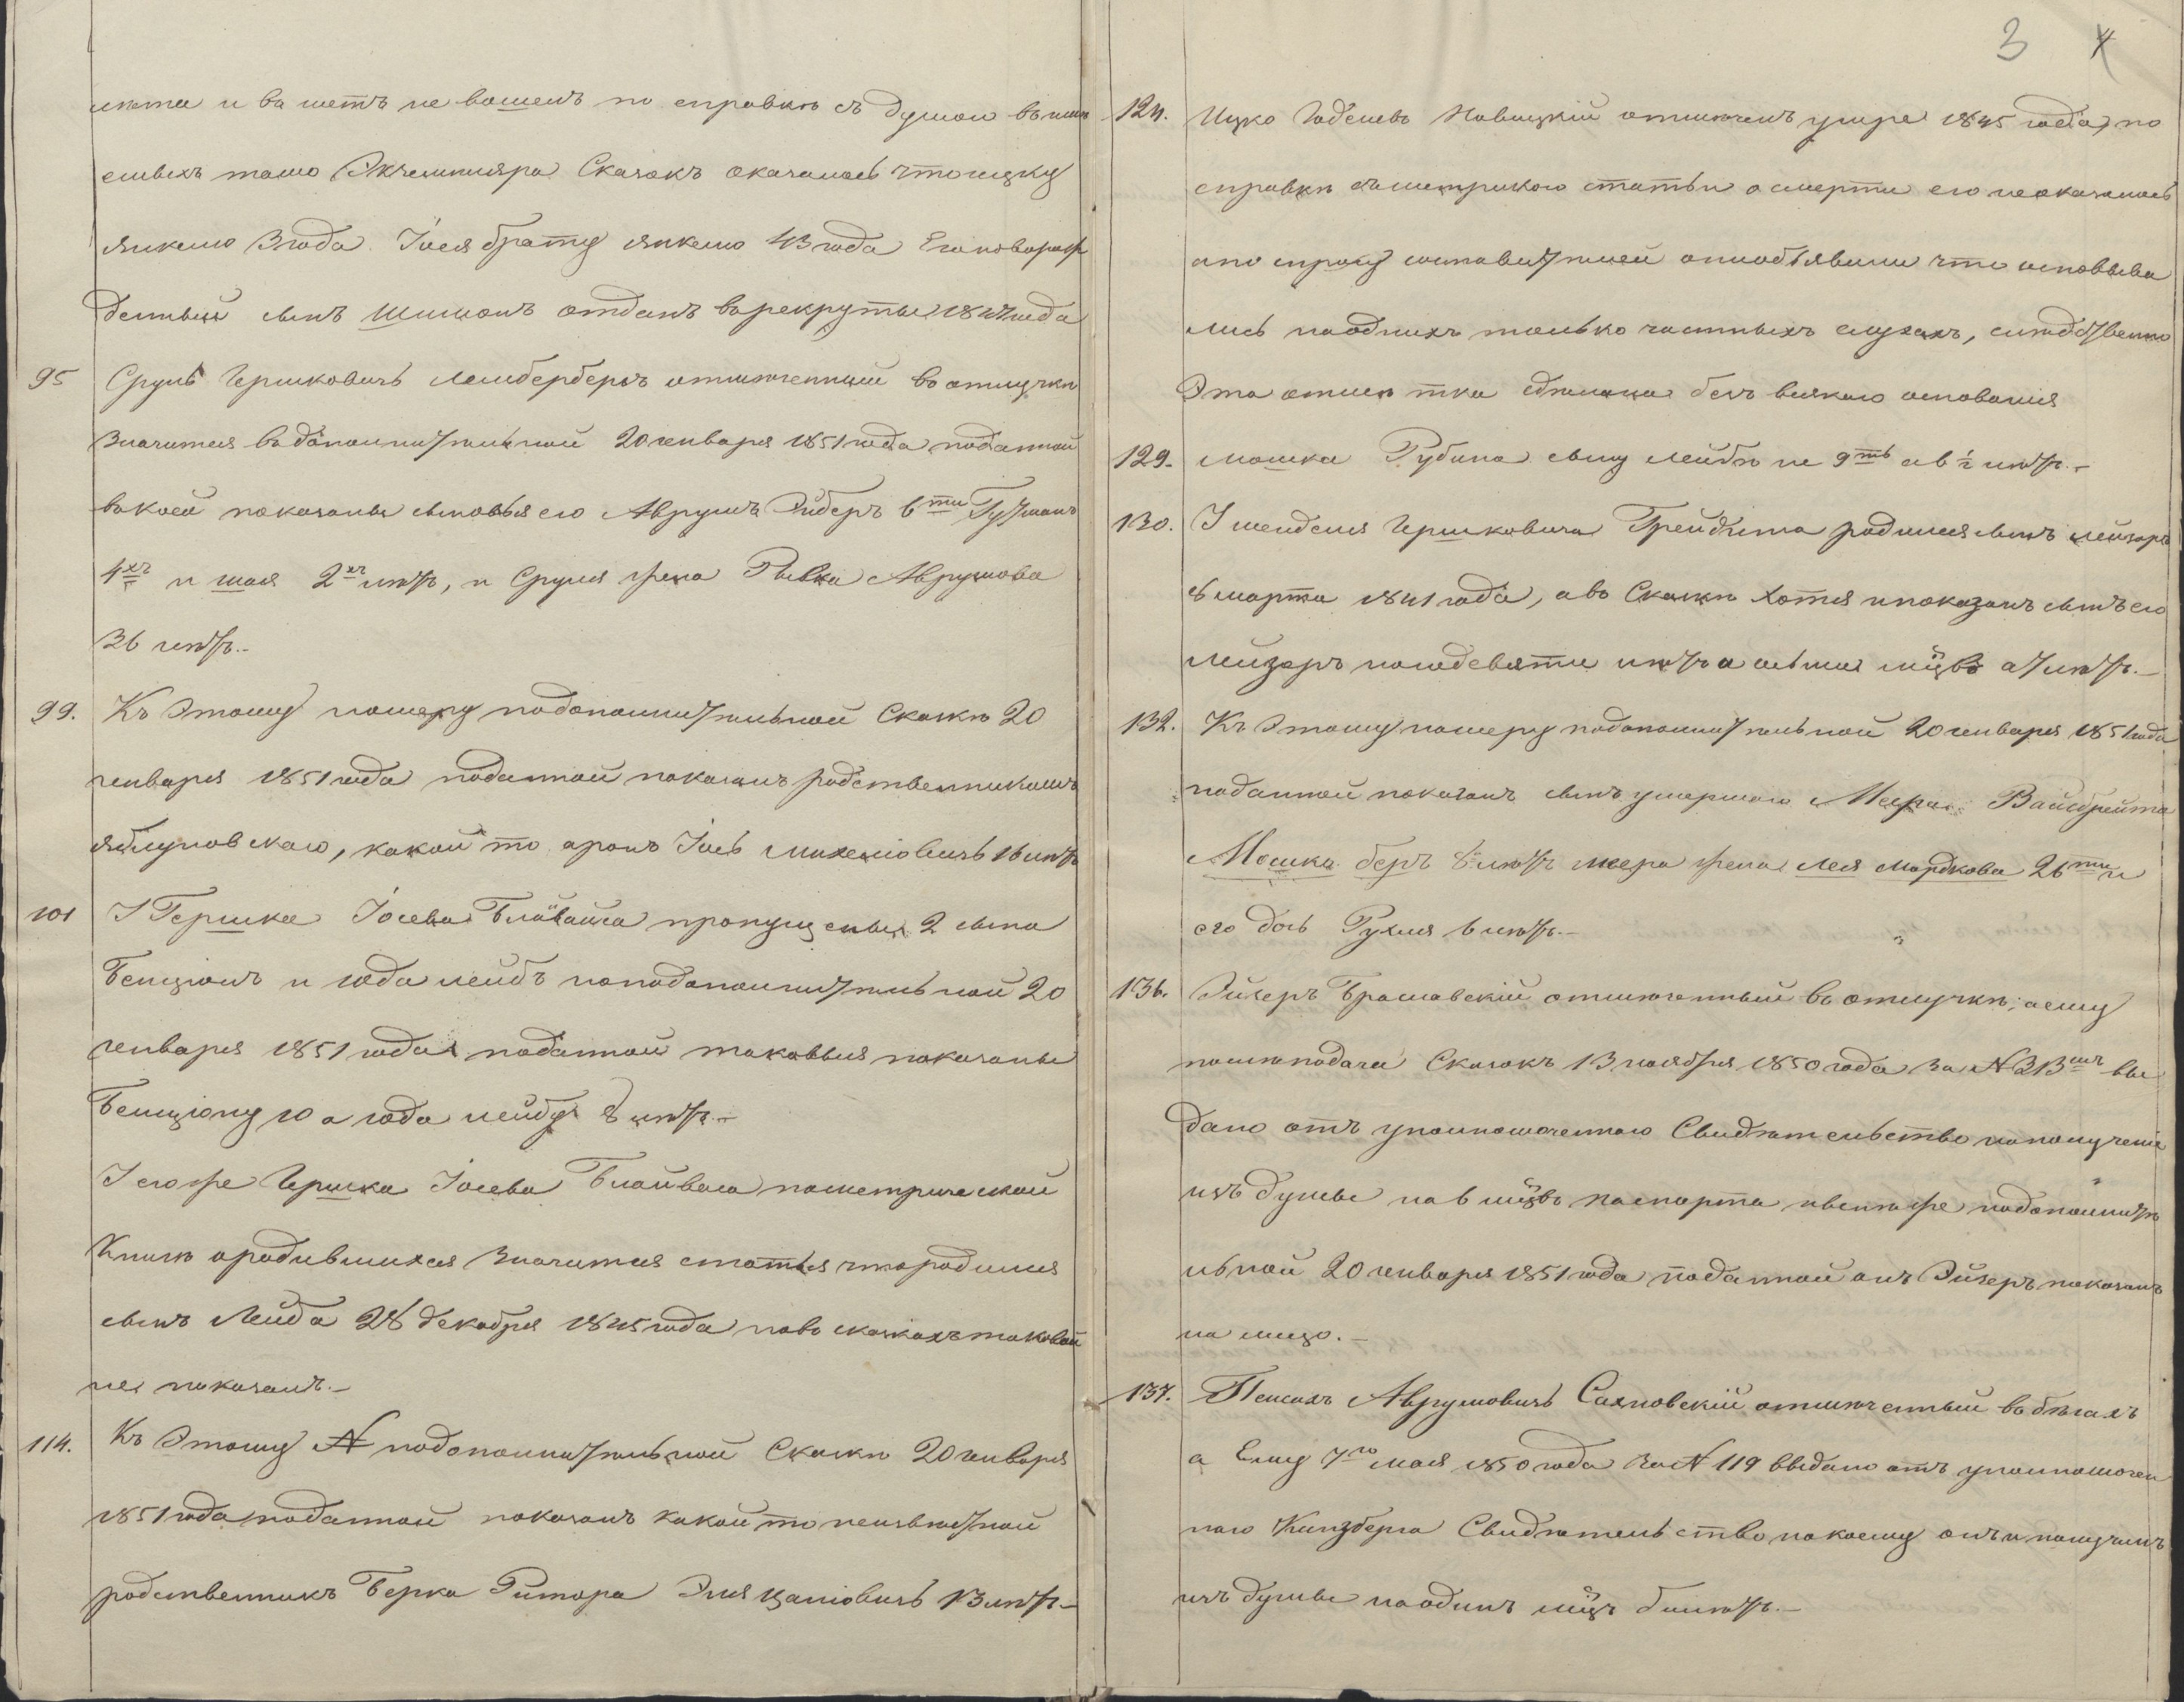 лѣта и въ шетъ не вошелъ по справкѣ съ думой въ
емыхъ тамо Экземпляра Сказокъ оказалось что ицку
янкелю 3 года Іося брату янкелю 43 года Его
сынъ Шимонъ отданъ въ рекруты 184 года
95 Сруль Гершковичъ Лемберберъ отмѣченный въ отлучкѣ
значится въ дополнительной 20 генваря 1851 года поданной
въ коей показаны сыновья его Аврумъ Эйберъ 6ти Гутманъ
4хъ и шая 2хъ лѣтъ, и Сруля жена Рывка Аврумова
36 лѣтъ.-
99. Къ Этому номеру по дополнительной Сказкѣ 20
генваря 1851 года поданной показанъ родственникомъ
яблуновскаго, какой то аронъ Іось Михелiовичъ 16 лѣтъ
101 У Гершка Іосева Блайваса пропущены 2 сына
Бенціонъ и юда лейбъ но по дополнительной 20
генваря 1851 года поданной таковыя показаны
Бенціону 10 а юда лейбу 8 лѣтъ.-
У егоже Гершка Іосева Блайваса по метрической
Книгѣ о родившихся значится статья что родился
сынъ Лейба 28 декабря 1845 года но въ сказкахъ таковой
не показанъ.-
114. Къ Этому № по дополнительной Сказкѣ 20 генваря
1851 года поданной показанъ какой то неизвѣстной
родственникъ Берка Ритора Эля Цалiовичъ 13 лѣтъ-
3 4
124. Ицко Новицкій отмѣченъ умре 1845 года, по
справкѣ съ метрикою статьи о смерти его не оказалось
а по спросу составителей они объявили что основыва
лись на однихъ только частныхъ слухахъ, слѣдственно
Эта отмѣтка сдѣлана безъ всякаго основанія
129. мошка Рубина сыну лейбѣ не 9ть а 8½ лѣтъ.-
130. У менделя Гершковича родился сынъ лейзоръ
8 марта 1841 года, а въ Сказкѣ хотя и показанъ сынъ его
лейзоръ но девяти лѣтъ и мцвъ а лѣтъ.-
132. Къ Этому номеру по дополнительной 20 генваря 1851 года
поданной показанъ сынъ умершаго Меера Вайсбрейта
Мошка беръ 8 лѣтъ меера жена лея мордкова 26ти и
его дочь Рухля 6 лѣтъ.-
136. Эйзеръ Браславскій отмѣченный въ отлучкѣ, а ему
подача Сказокъ 13 ноября 1850 года за № 313мъ вы
дано отъ уполномоченнаго Свидѣтельство на полученіе
изъ думы на 6 мцвъ паспорта по дополните
льной 20 генваря 1851 года поданной онъ Эйзеръ показанъ
на лицо.-
137. Пейсахъ Аврумовичъ Сахновскій отмѣченный въ бѣгахъ
а Ему 7го мая 1850 года за № 119 выдано отъ уполномочен
наго Кинзберга Свидѣтельство по коему онъ и получилъ
изъ думы на одинъ мцъ билетъ.-